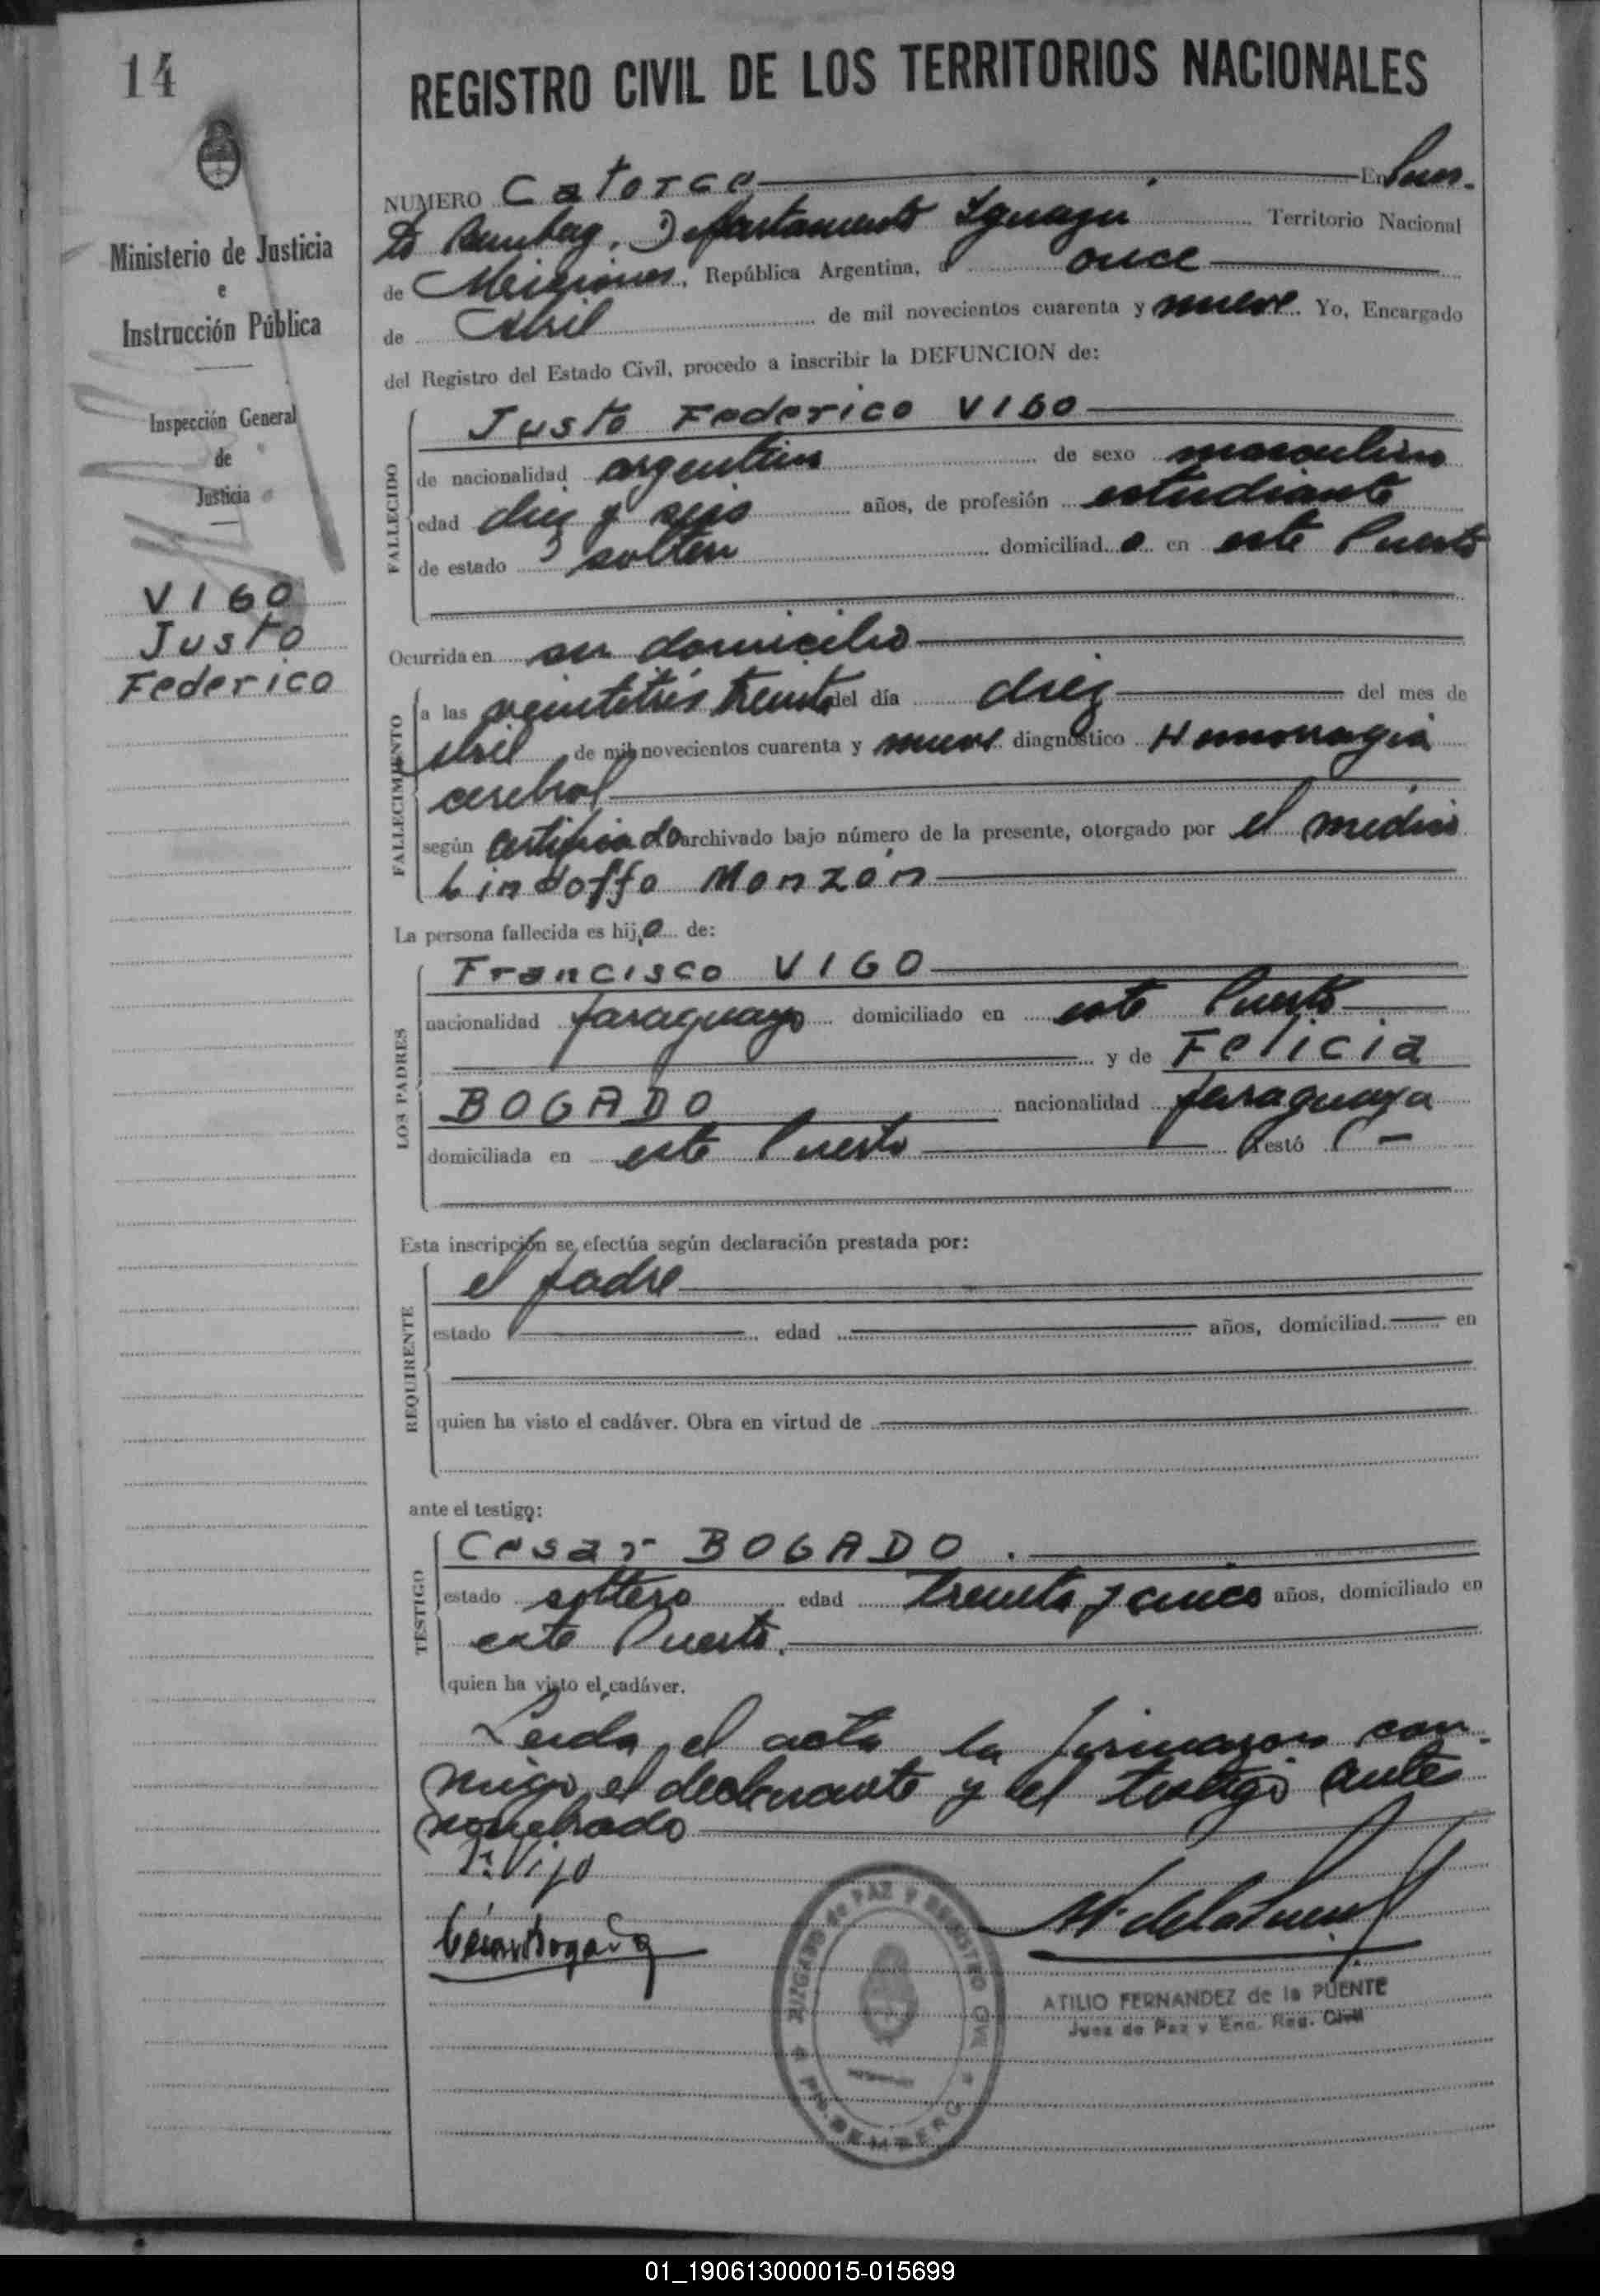 14
REGISTRO CIVIL DE LOS TERRITORIOS NACIONALES
Ministerio de Justicia
e
Instrucción Pública
Inspección General
de
Justicia
VIGO
Justo
Federico
NUMERO Catorce En Puer-
to Bemberg, Departamento Iguazú Territorio Nacional
de Misiones, República Argentina, a once
de Abril de mil novecientos cuarenta y nueve. Yo, Encargado
del Registro del Estado Civil, procedo a inscribir la DEFUNCION de:
FALLECIDO
Justo Federico VIGO
de nacionalidad argentino de sexo masculino
edad diez y seis años, de profesión estudiante
de estado soltero domiciliado en este Puerto
Ocurrida en su domicilio
FALLECIMIENTO
a las veintitrés treinta del día diez del mes de
Abril de mil novecientos cuarenta y nueve diagnóstico Hemorragia
cerebral
según certificado archivado bajo número de la presente, otorgado por el médico
Lindolfo Monzón
La persona fallecida es hijo de:
LOS PADRES
Francisco VIGO
nacionalidad paraguayo domiciliado en este Puerto
y de Felicia
BOGADO nacionalidad paraguaya
domiciliada en este Puerto Testó
Esta inscripción se efectúa según declaración prestada por:
REQUIRENTE
el padre
estado edad años, domiciliad en
quien ha visto el cadáver. Obra en virtud de
ante el testigo:
TESTIGO
Cesar BOGADO.
estado soltero edad treinta y cinco años, domiciliado en
este Puerto.
quien ha visto el cadáver.
Leida el acta la firmaron con-
migo, el declarante y el testigo antes
nombrado
Vigo
César Bogado
M. de la Puente
JUZGADO de PAZ Y REGISTRO CIVIL
PTO. BEMBERG
ATILIO FERNANDEZ de la PUENTE
Juez de Paz y Enc. Reg. Civil
01_190613000015-015699